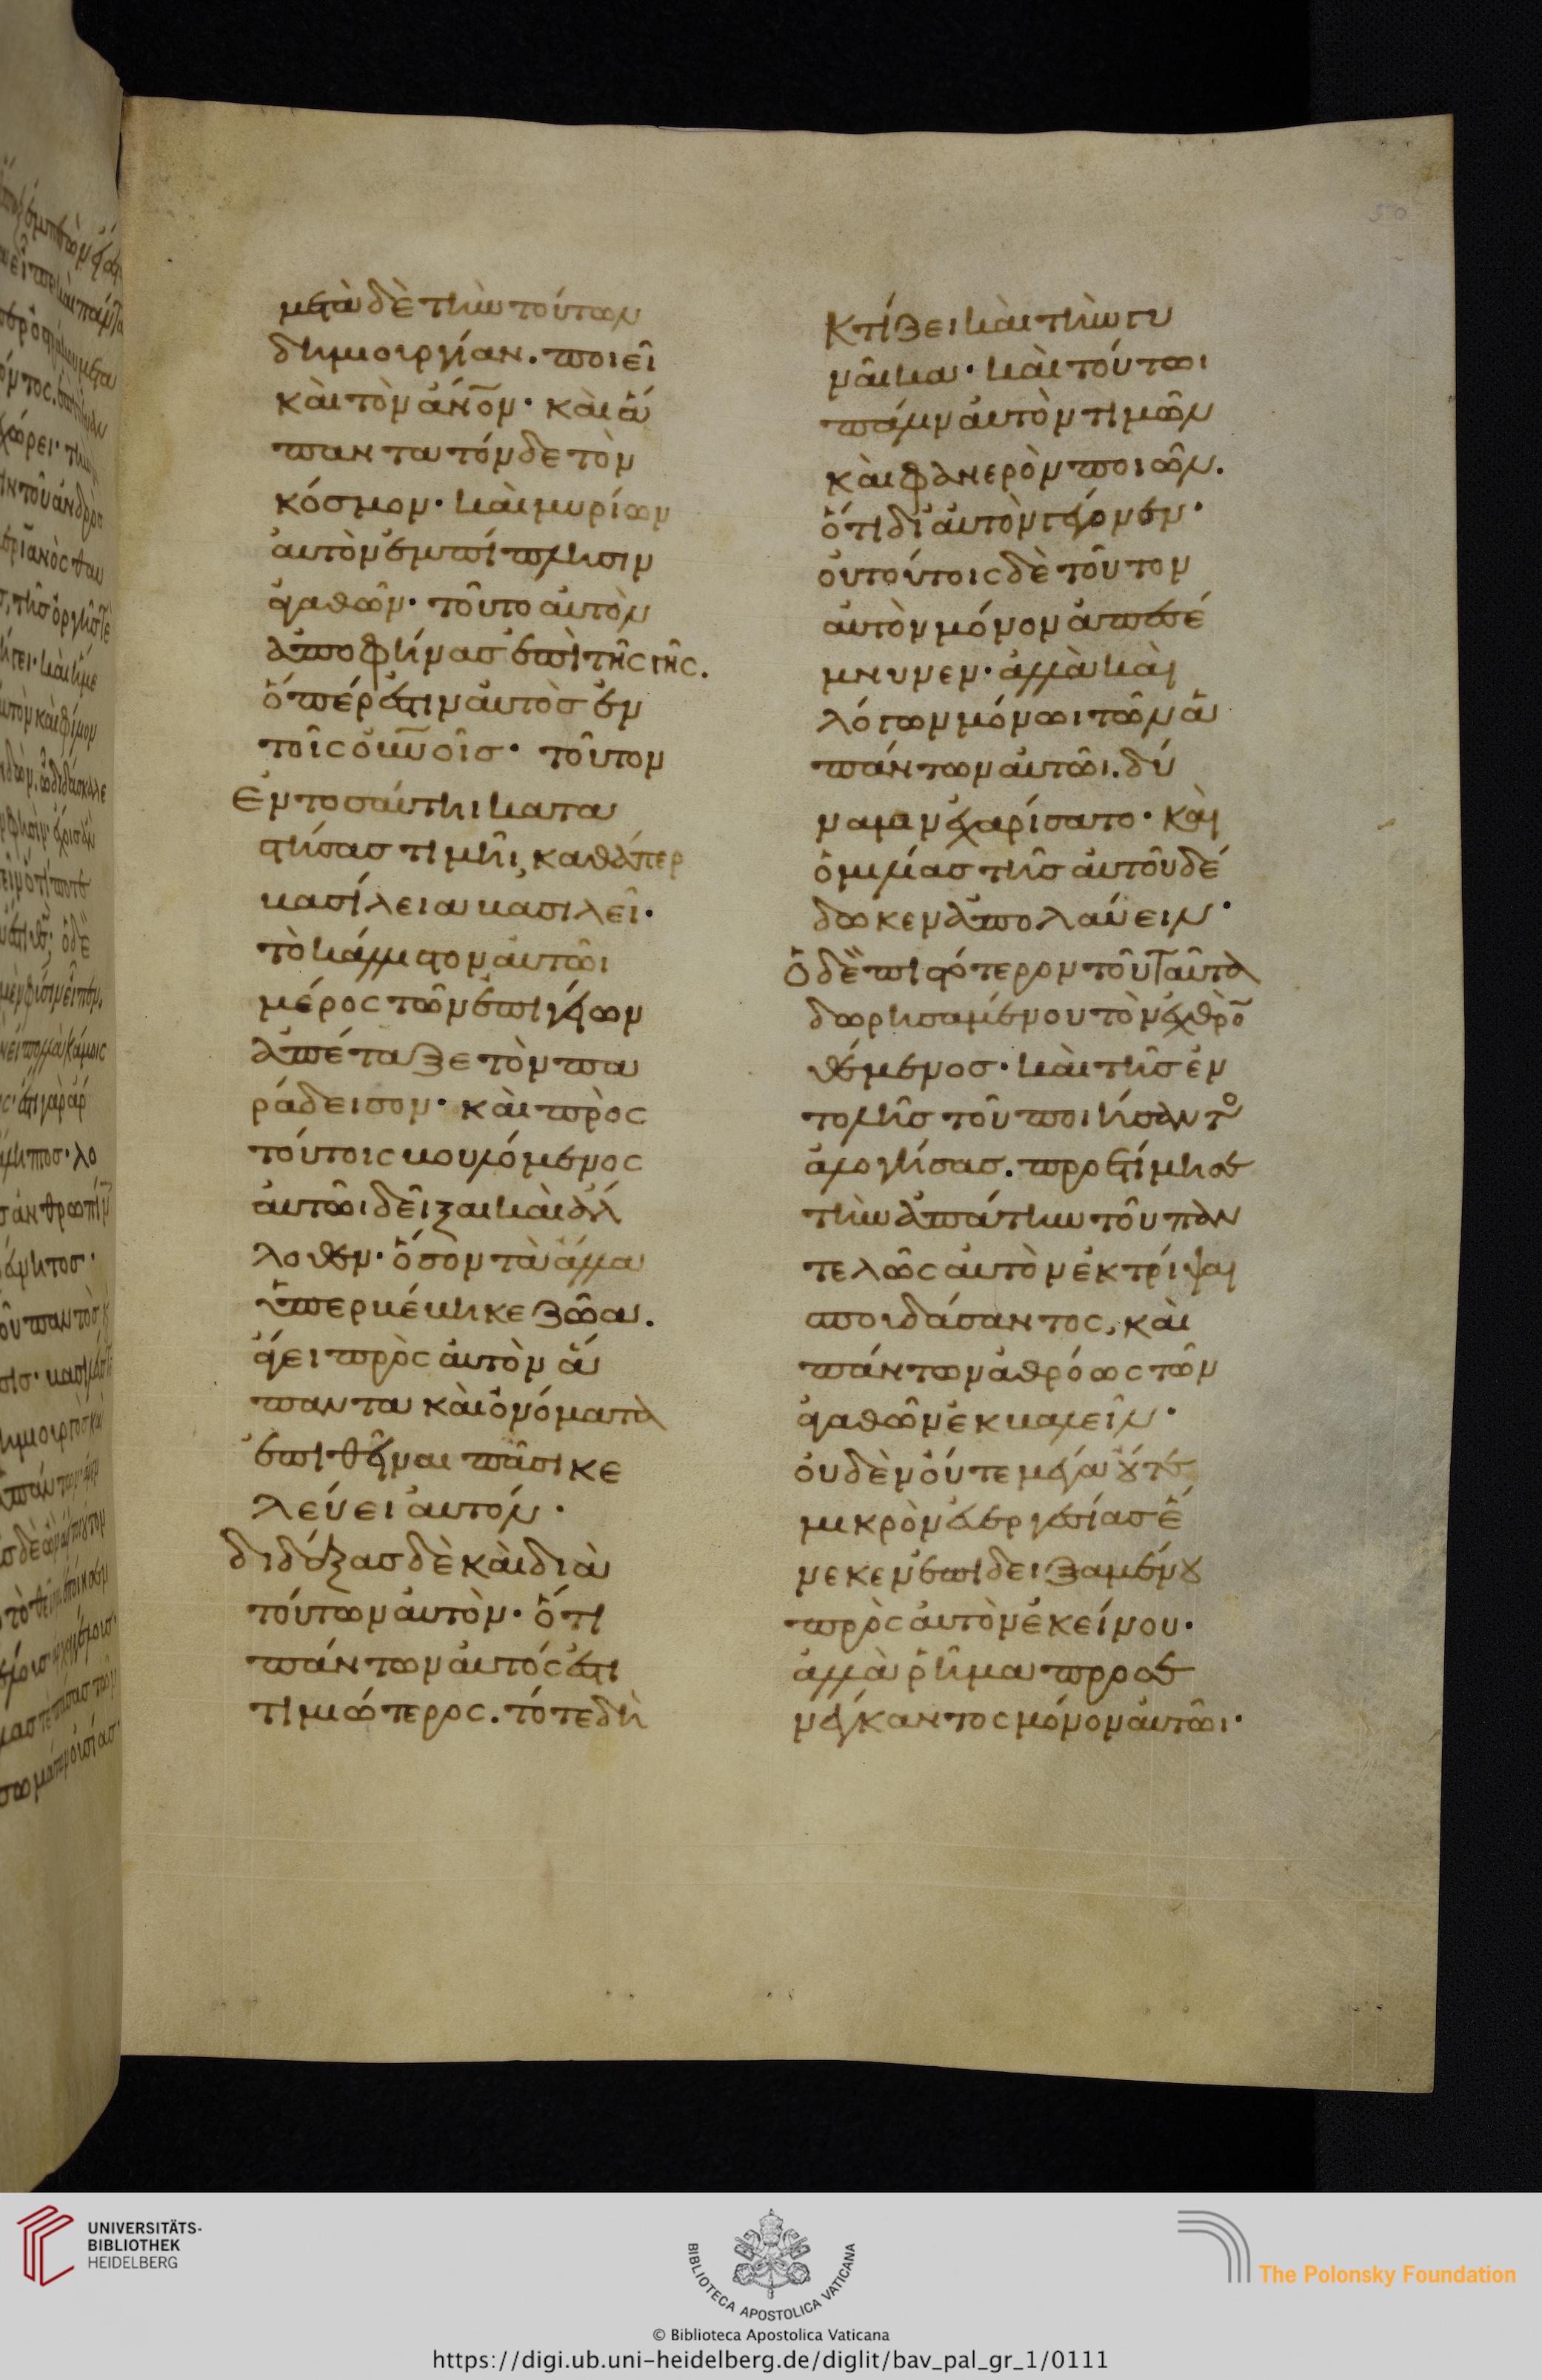 μετὰ δὲ τὴν τούτων
δημιουργίαν. ποιεῖ
καὶ τὸν ἄνον· καὶ ἅ
παντα τόνδε τὸν
κόσμον· καὶ μυρίων
αὐτὸν ἐμπίπλησιν
ἀγαθῶν· τοῦτο αὐτὸν
ἀποφήνας ἐπὶ τῆς γῆς.
ὅπέρ ἐστιν αὐτὸς ἐν
τοῖς οὐνοῖς· τοῦτον
Ἐν τοσαύτηι κατα
στήσας τιμῆι, καθάπερ
βασίλεια βασιλεῖ·
τὸ κάλλιστον αὐτῶι
μέρος τῶν ἐπιγείων
ἀπέταξε τὸν πα
ράδεισον· καὶ πρὸς
τούτοις βουλόμενος
αὐτῶι δεῖξαι καὶ ἄλ
λοθεν· ὅσον τὰ ἄλλα
ὑπερβέβηκε ζῶα.
ἄγει πρὸς αὐτὸν ἅ
παντα καὶ ὀνόματα
ἐπιθεῖναι πᾶσι κε
λεύει αὐτόν·
διδάξας δὲ καὶ διὰ
τούτων αὐτὸν· ὅτι
πάντων αὐτός ἐστι
τιμιώτερος. τότε δὴ
κτίζει καὶ τὴν γυ
ναῖκα· καὶ τούτωι
πάλιν αὐτὸν τιμῶν
καὶ φανερὸν ποιῶν.
ὅτι δι αὐτὸν γέγονεν·
οὐ τούτοις δὲ τοῦτον
αὐτὸν μόνον ἀπεσέ
μνυνεν· ἀλλὰ καὶ
λόγων μόνωι τῶν ἁ
πάντων αὐτῶι. δύ
ναμιν ἐχαρίσατο· καὶ
ὁμιλίας τῆς αὐτοῦ δέ
δωκεν ἀπολαύειν·
ὁ δὲ πιστότερον τοῦ ταῦτα
δωρησαμένου τὸν ἐχθρὸ
θέμενος· καὶ τῆς ἐν
τολῆς τοῦ ποιήσαντο
ἀλογήσας. προετίμησε
τὴν ἀπάτην τοῦ παν
τελῶς αὐτὸν ἐκτρίψαι
σπουδάσαντος, καὶ
πάντων ἀθρόως τῶν
ἀγαθῶν ἐκβαλεῖν·
οὐδὲν οὔτε μέγα οὔτε
μικρὸν εὐεργεσίας ἕ
νεκεν ἐπιδειξαμένου
πρὸς αὐτὸν ἐκείνου·
ἀλλὰ ῥῆμα προσε
νέγκαντος μόνον αὐτῶι·
UNIVERSITÄTS-
BIBLIOTHEK
HEIDELBERG
BIBLIOTECA APOSTOLICA VATICANA
The Polonsky Foundation
© Biblioteca Apostolica Vaticana
https://digi.ub.uni-heidelberg.de/diglit/bav_pal_gr_1/0111